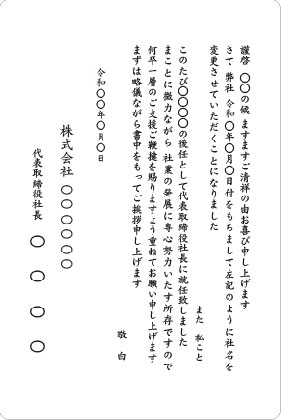 謹啓 〇〇の候 ますますご清祥の由お喜び申し上げます
さて 弊社 令和〇年〇月〇日付をもちまして左記のように社名を
変更させていただくことになりました
また 私こと
このたび〇〇〇〇の後任として代表取締役社長に就任致しました
まことに微力ながら 社業の発展に専心努力いたす所存ですので
何卒一層のご支援ご鞭撻を賜りますよう重ねてお願い申し上げます
まずは略儀ながら書中をもってご挨拶申し上げます
敬白
令和〇〇年〇月〇日
株式会社 〇〇〇〇〇〇
代表取締役社長 〇 〇 〇 〇